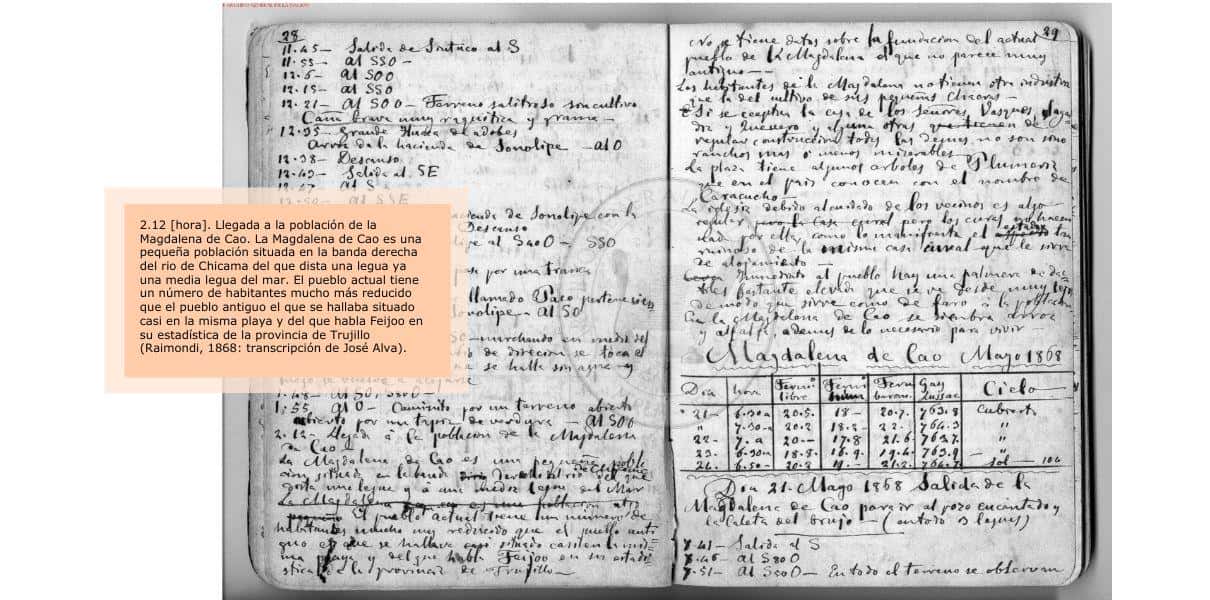 28
11.45— Salida de Sintuco al S
11.55— al SSO—
12.5— al SOO
12.15— al SSO
12.21— al SOO— Terreno salitroso sin cultivo
Caña brava muy raquitica y grama—
12.35— Grande Huaca de adobes
Atras de la hacienda de Sonolipe —al O
12.38— Descanso
12.43— Salida al SE
al S
al SSE
2.12 [hora]. Llegada a la población de la
Magdalena de Cao. La Magdalena de Cao es una
pequeña población situada en la banda derecha
del rio de Chicama del que dista una legua ya
una media legua del mar. El pueblo actual tiene
un número de habitantes mucho más reducido
que el pueblo antiguo el que se hallaba situado
casi en la misma playa y del que habla Feijoo en
su estadística de la provincia de Trujillo
(Raimondi, 1868: transcripción de José Alva).
de Sonolipe con la
Descanso
al S40O— SSO
por una tranca
llamado Paco perteneciente
Sonolipe— al SO
—marchando en medio del
de direccion se toca el
se halla sin agua y
1.48— al SO, SSO—
1.55 al O— Caminito por un terreno abierto
cubierto por un tapiz de verdura— al SOO
2.12— Llegada á la poblacion de la Magdalena
de Cao—
La Magdalena de Cao es un pequeña pobla
cion situada en la banda derecha del rio de Chicama del que
dista una legua y á una media legua del Mar
La Magdalena
El pueblo actual tiene un número de
habitantes mucho mas reducido que el pueblo anti
guo el que se hallava casi situado casi en la mis=
ma playa y del que habla Feijoo en su estadi=
stica de la provincia de Trujillo—
29
No se tiene datos sobre la fundacion del actual
pueblo de la Magdalena el que no parece muy
antiguo—
Los habitantes de la Magdalena no tienen otra industria
que la del cultivo de sus pequeñas chacras—
Si se exceptua la casa de los Señores Vasquez,
y Quevero y alguna otras que tienen de
regular construccion todas las demas no son sino
ranchos mas o menos miserables—
La plaza tiene algunos arboles de Plumeria
que en el pais conocen con el nombre de
Caracucho—
La iglesia debido al cuidado de los vecinos es algo
regular pero la casa cural pero los curas no hacen
nad por ella, como lo manifiesta el estado
ruinoso de la misma casa cural que le sirve
de alojamiento—
Inmediato al pueblo hay una palmera de da
tiles bastante elevada que se ve desde muy lejos
de modo que sirve como de faro á la poblacion
En la Magdalena de Cao se siembra arroz
y alfalfa, ademas de lo necesario para vivir
Magdalena de Cao Mayo 1868
Dia hora Term libre Term Term barom. Gay Lussac Cielo
21— 6.30a 20.5. 18— 20.7. 763.8 Cubierto
" 7.30a 20.2 18.2— 22.— 764.3 "
22— 7.a 20— 17.8 21.6— 763.7. "
23. 6.30a 18.8. 16.9. 19.4— 763.9 — "
24. 6.50— 20.2 19.— 21.2. 764.7 Sol—
Dia 21. Mayo 1868 Salida de la
Magdalena de Cao para ir al pozo encantado y
la Caleta del brujo— (antoro 3 leguas)
7.41— Salida al S
7.46— al S30O
7.51— al SSOO— En todo el terreno se observan